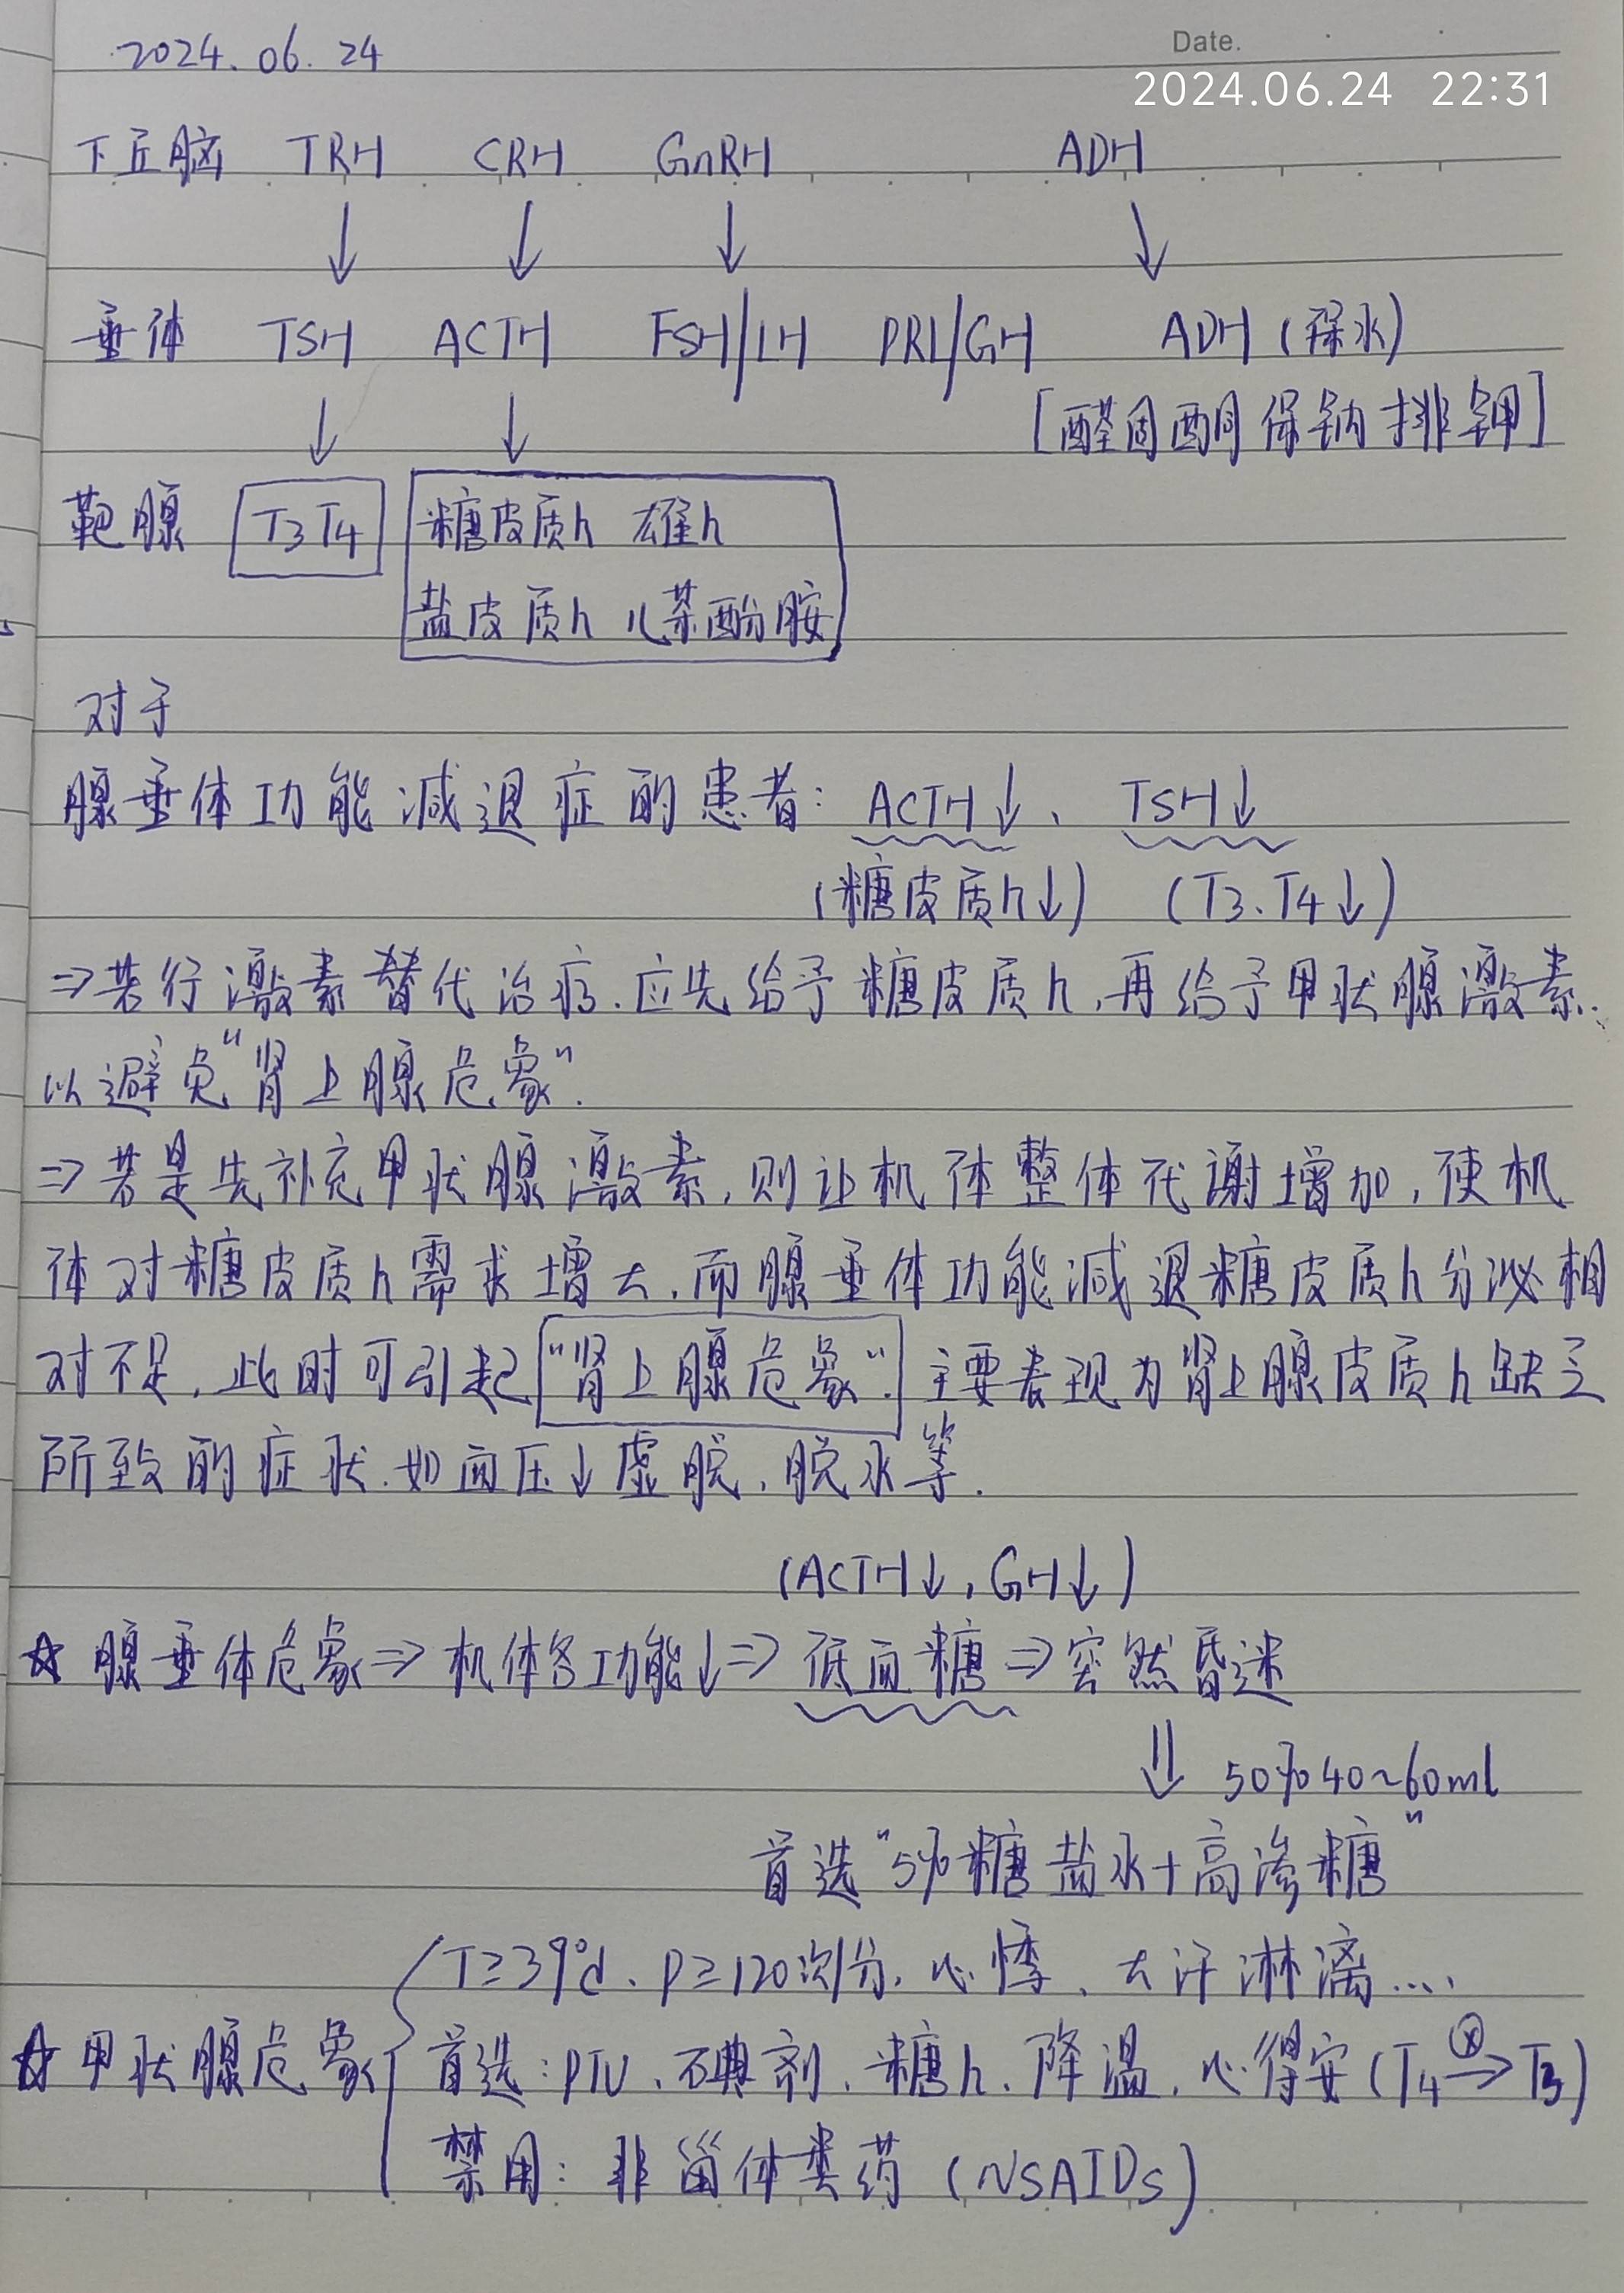 2024.06.24
Date.
2024.06.24 22:31
下丘脑 TRH CRH GnRH ADH
↓ ↓ ↓ ↓
垂体 TSH ACTH FSH/LH PRL/GH ADH（保水）
↓ ↓ [醛固酮保钠排钾]
靶腺 T3T4 糖皮质h 雄h
盐皮质h 儿茶酚胺
对于
腺垂体功能减退症的患者：ACTH↓、TSH↓
（糖皮质h↓）（T3、T4↓）
⇒若行激素替代治疗，应先给予糖皮质h，再给予甲状腺激素.
以避免“肾上腺危象”.
⇒若是先补充甲状腺激素，则让机体整体代谢增加，使机
体对糖皮质h需求增大，而腺垂体功能减退糖皮质h分泌相
对不足，此时可引起“肾上腺危象”.主要表现为肾上腺皮质h缺乏
所致的症状.如血压↓虚脱，脱水等.
（ACTH↓，GH↓）
☆腺垂体危象⇒机体各功能↓⇒低血糖⇒突然昏迷
⇓ 50%40~60ml
首选“5%糖盐水+高渗糖”
T≥39℃、P≥120次/分，心悸、大汗淋漓....
☆甲状腺危象 首选：PTU、碘剂、糖h、降温，心得安（T4→T3）
禁用：非甾体类药（NSAIDs）